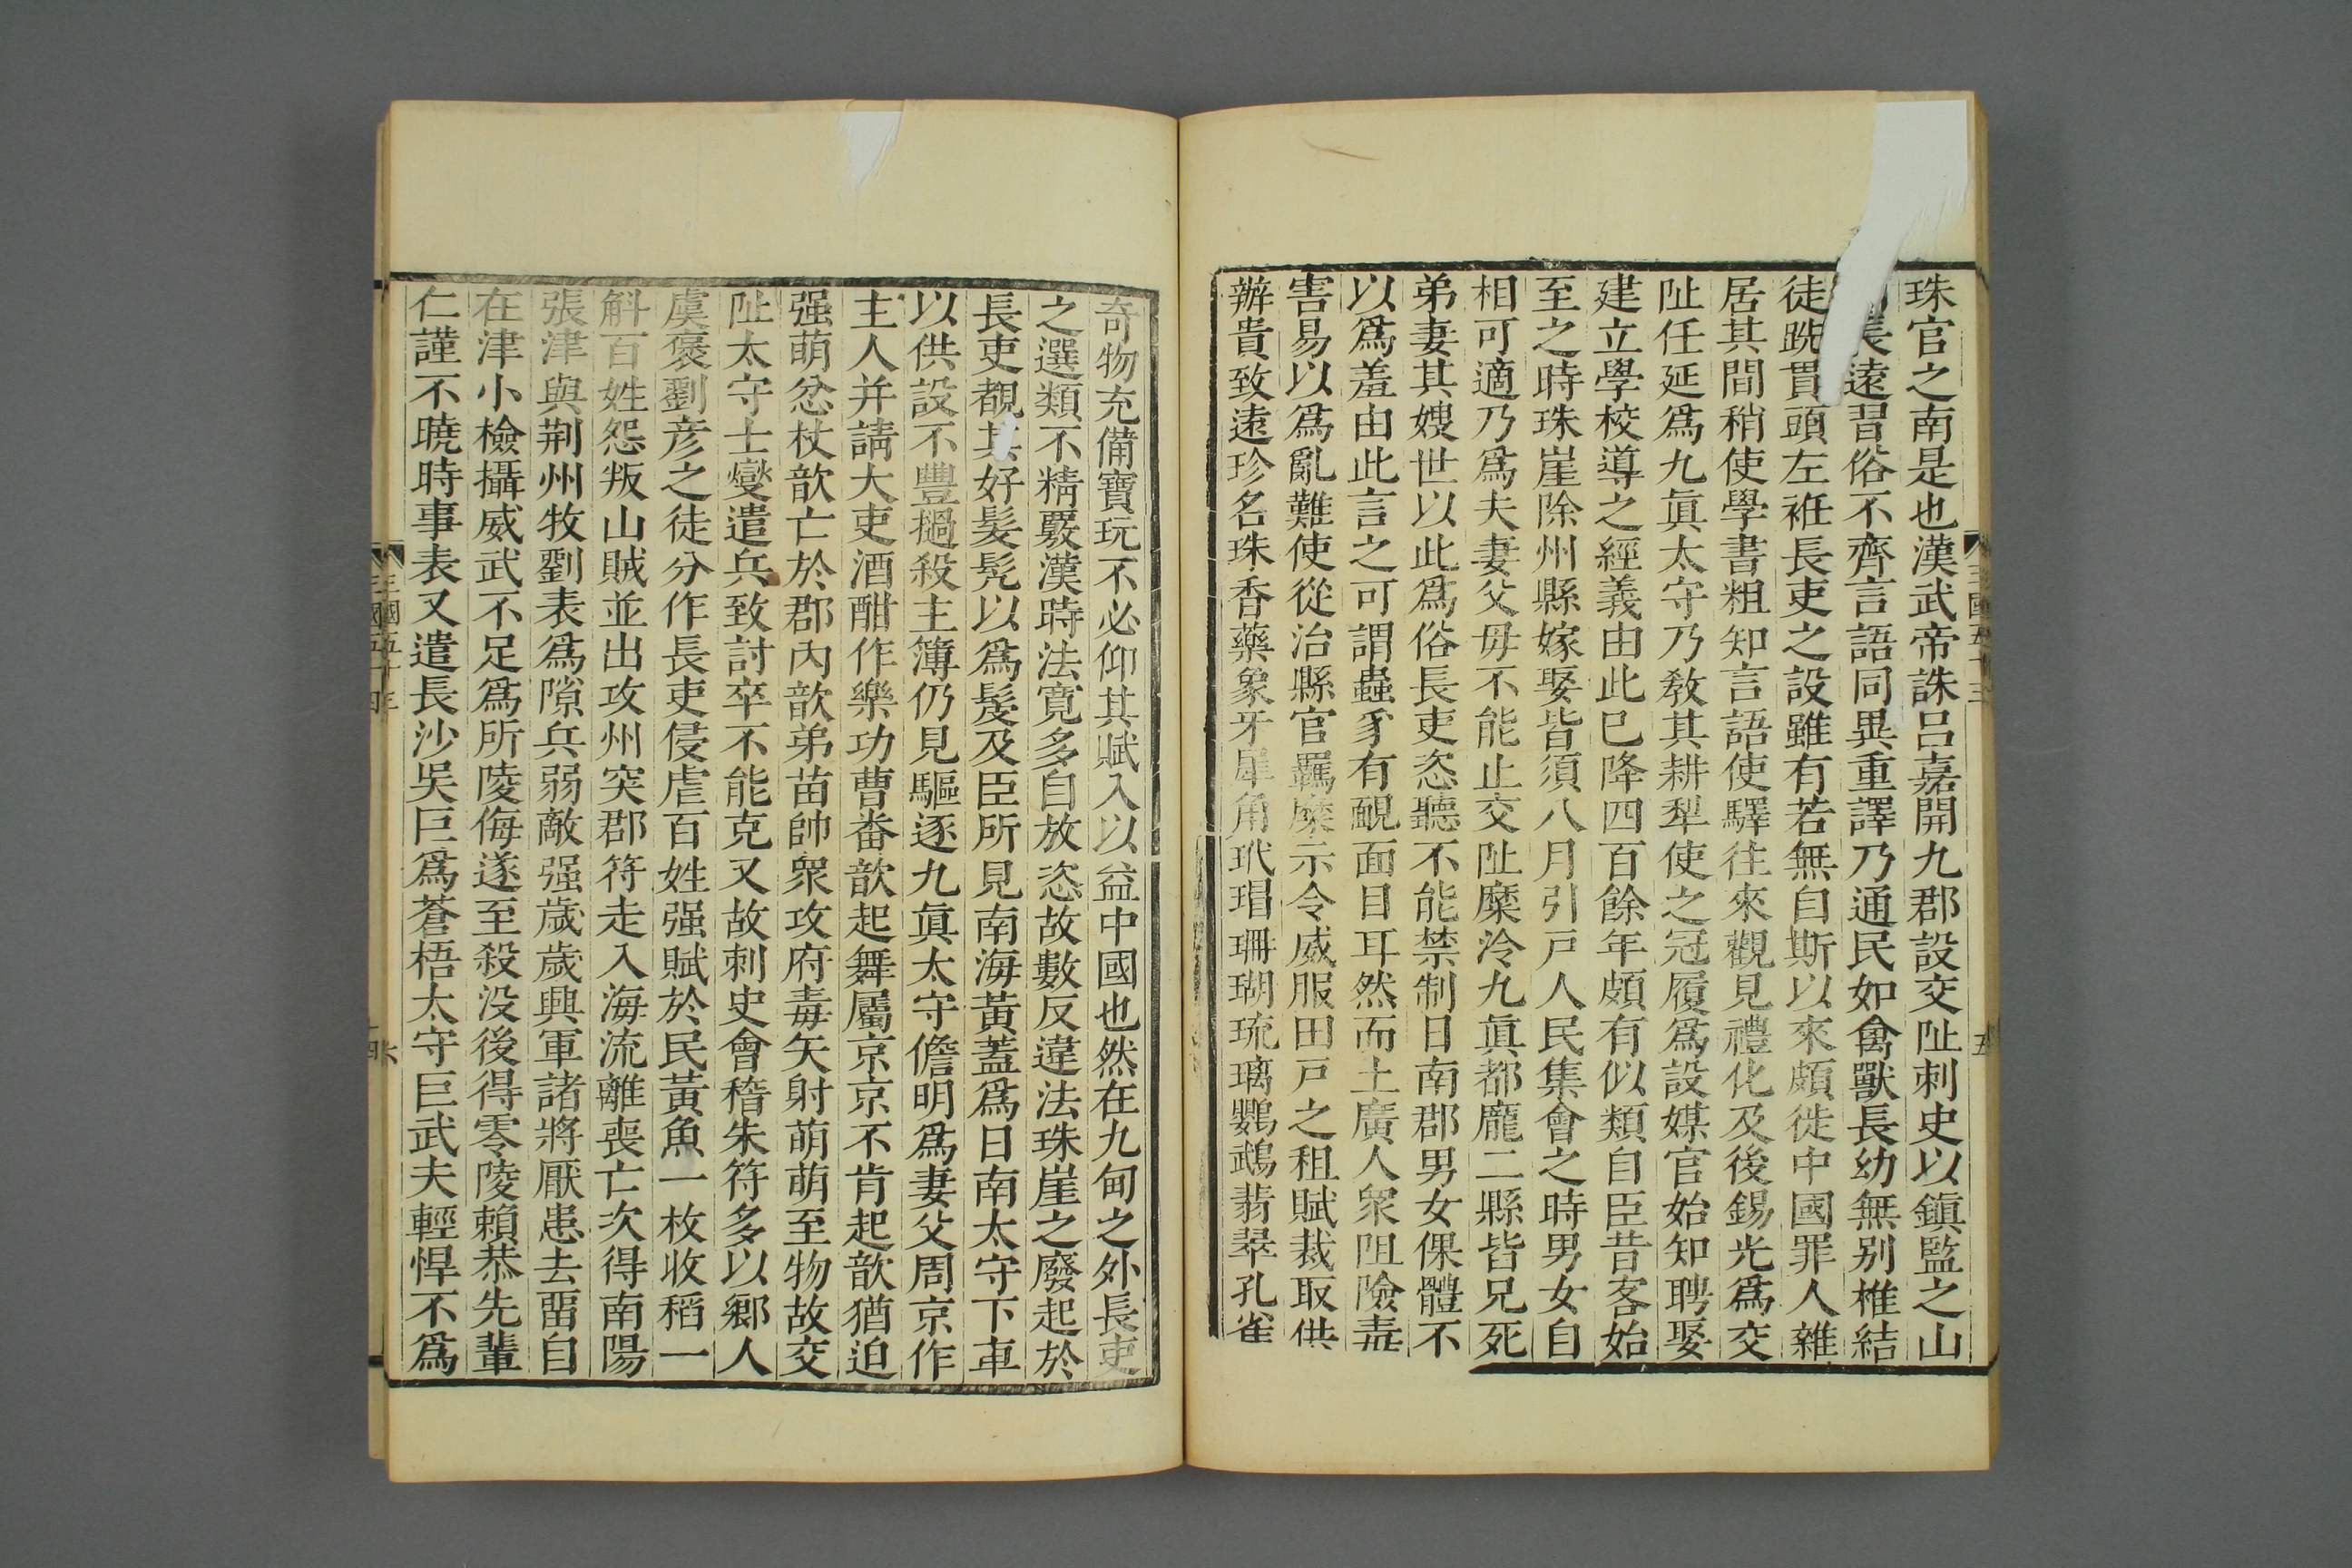 珠官之南是也漢武帝誅呂嘉開九郡設交阯刺史以鎮監之山
長遠習俗不齊言語同異重譯乃通民如禽獸長幼無别椎結
徒跣貫頭左袵長吏之設雖有若無自斯以來頗徙中國罪人雜
居其間稍使學書粗知言語使驛往來觀見禮化及後錫光爲交
阯任延爲九眞太守乃敎其耕犁使之冠履爲設媒官始知聘娶
建立學校導之經義由此已降四百餘年頗有似類自臣昔客始
至之時珠崖除州縣嫁娶皆須八月引戸人民集會之時男女自
相可適乃爲夫妻父母不能止交阯糜泠九眞都龐二縣皆兄死
弟妻其嫂世以此爲俗長吏恣聽不能禁制日南郡男女倮體不
以爲羞由此言之可謂蟲豸有靦面目耳然而土廣人衆阻險毒
害易以爲亂難使從治縣官羈縻示令威服田戸之租賦裁取供
辦貴致遠珍名珠香藥象牙犀角玳瑁珊瑚琉璃鸚鵡翡翠孔雀
奇物充備寶玩不必仰其賦入以益中國也然在九甸之外長吏
之選類不精覈漢時法寛多自放恣故數反違法珠崖之廢起於
長吏覩其好髪髡以爲髲及臣所見南海黄蓋爲日南太守下車
以供設不豐撾殺主簿仍見驅逐九眞太守儋明爲妻父周京作
主人并請大吏酒酣作樂功曹番歆起舞屬京京不肯起歆猶迫
强萌忿杖歆亡於郡内歆弟苗帥衆攻府毒矢射萌萌至物故交
阯太守士燮遣兵致討卒不能克又故刺史會稽朱符多以鄉人
虞褒劉彦之徒分作長吏侵虐百姓强賦於民黄魚一枚收稻一
斛百姓怨叛山賊並出攻州突郡符走入海流離喪亡次得南陽
張津與荆州牧劉表爲隙兵弱敵强歲歲興軍諸將厭患去畱自
在津小檢攝威武不足爲所陵侮遂至殺没後得零陵賴恭先輩
仁謹不曉時事表又遣長沙吳巨爲蒼梧太守巨武夫輕悍不爲